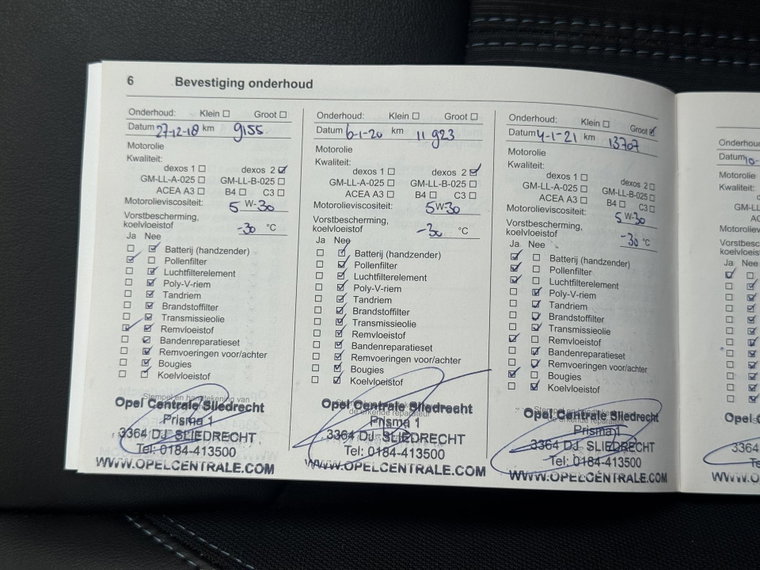 6 Bevestiging onderhoud
Onderhoud: Klein ☐ Groot ☐
Datum 27-12-18 km 9155
Motorolie
Kwaliteit:
dexos 1 ☐ dexos 2 ☑
GM-LL-A-025 ☐ GM-LL-B-025 ☐
ACEA A3 ☐ B4 ☐ C3 ☐
Motorolieviscositeit: 5 W-30
Vorstbescherming,
koelvloeistof -30 °C
Ja Nee
Batterij (handzender)
Pollenfilter
Luchtfilterelement
Poly-V-riem
Tandriem
Brandstoffilter
Transmissieolie
Remvloeistof
Bandenreparatieset
Remvoeringen voor/achter
Bougies
Koelvloeistof
Opel Centrale Sliedrecht
Prisma 1
3364 DJ SLIEDRECHT
Tel: 0184-413500
WWW.OPELCENTRALE.COM
Onderhoud: Klein ☐ Groot ☐
Datum 6-1-20 km 11923
Motorolie
Kwaliteit:
dexos 1 ☐ dexos 2 ☑
GM-LL-A-025 ☐ GM-LL-B-025 ☐
ACEA A3 ☐ B4 ☐ C3 ☐
Motorolieviscositeit: 5 W-30
Vorstbescherming,
koelvloeistof -30 °C
Ja Nee
Batterij (handzender)
Pollenfilter
Luchtfilterelement
Poly-V-riem
Tandriem
Brandstoffilter
Transmissieolie
Remvloeistof
Bandenreparatieset
Remvoeringen voor/achter
Bougies
Koelvloeistof
Opel Centrale Sliedrecht
Prisma 1
3364 DJ SLIEDRECHT
Tel: 0184-413500
WWW.OPELCENTRALE.COM
Onderhoud: Klein ☐ Groot ☑
Datum 4-1-21 km 13707
Motorolie
Kwaliteit:
dexos 1 ☐ dexos 2 ☐
GM-LL-A-025 ☐ GM-LL-B-025 ☐
ACEA A3 ☐ B4 ☐ C3 ☐
Motorolieviscositeit: 5 W-30
Vorstbescherming,
koelvloeistof -30 °C
Ja Nee
Batterij (handzender)
Pollenfilter
Luchtfilterelement
Poly-V-riem
Tandriem
Brandstoffilter
Transmissieolie
Remvloeistof
Bandenreparatieset
Remvoeringen voor/achter
Bougies
Koelvloeistof
Opel Centrale Sliedrecht
Prisma 1
3364 DJ SLIEDRECHT
Tel: 0184-413500
WWW.OPELCENTRALE.COM
Motorolie
Kwaliteit:
Ja Nee
3364